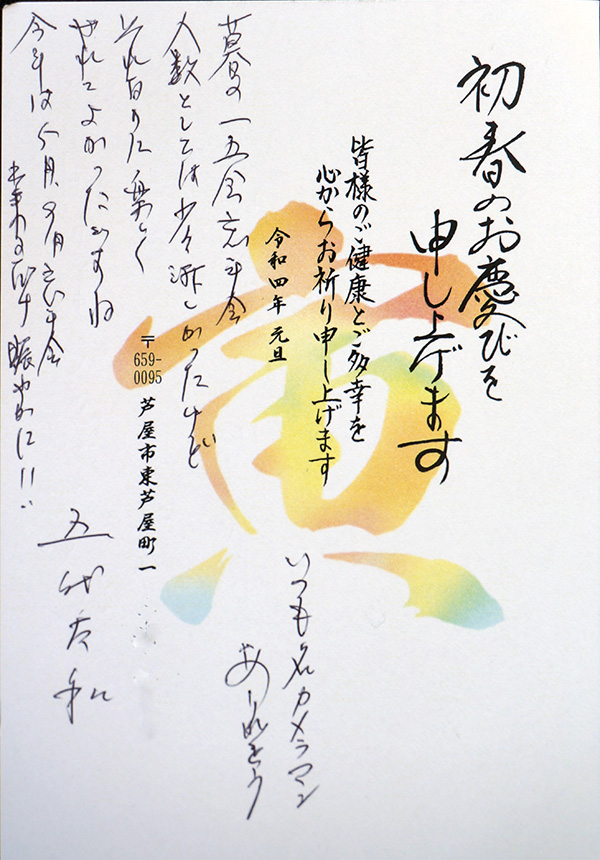 初春のお慶びを
申し上げます
皆様のご健康とご多幸を
心からお祈り申し上げます
令和四年 元旦
寅
〒659-0095
芦屋市東芦屋町一
いつも名カメラマン
ありがとう
暮の一五会忘年会
人数としては少々淋しかったけど
それなりに楽しく
やれてよかったですね
今年は5月、9月、忘年会
出来るだけ賑やかに!!
五代友和